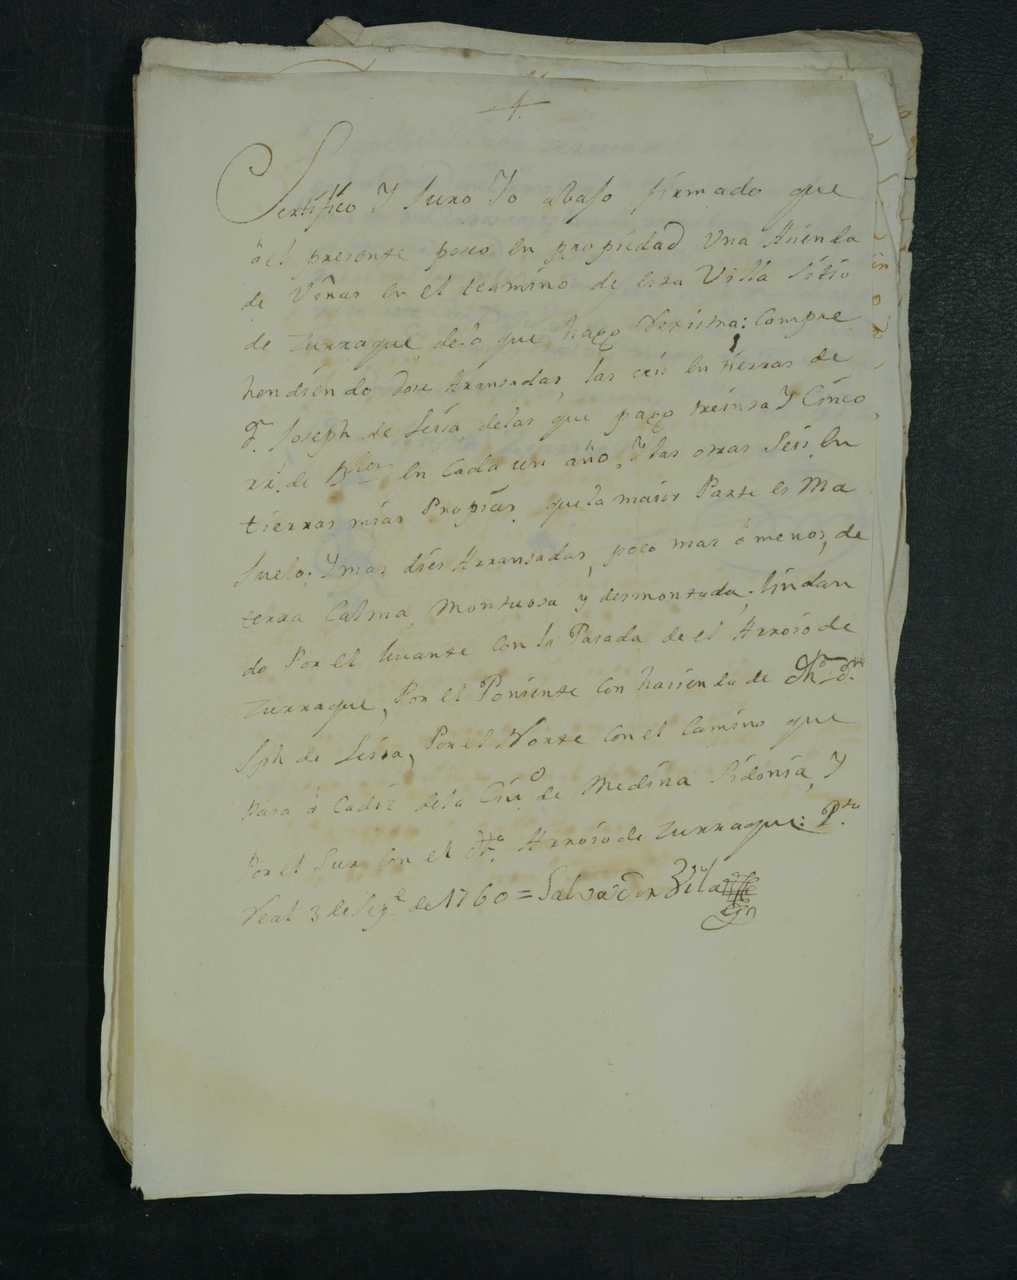 Sertifico Y Juro Yo abajo firmado que
òel presente poseo en propiedad Una Asienda
de Viñas en el termino de esta Villa Sitio
de Zurraque, delo que hago Rexistra: Compre
hendiendo dose Aransadas, las seis en tierras de
Dn Joseph de Lesia delas que pago treinta Y Cinco
rr. de Vn en Cada un año, Y las otras Seis en
tierras mias Propias, que la maior Parte es Ma
juelo; Y mas dies Arransadas, poco mas ò menos, de
terra Calma, Montuosa y desmontada. lindan
do Por el levante Con la Pasada de el Arroio de
Zurraque, Por el Poniente Con hasienda de Dho Dn
Jph de Lesia, Por el Norte Con el Camino que
Pasa à Cadiz dela Ciud de Medina Sidonia, Y
Por el Sur Con el dho Arroio de Zurraque: Pto
Real 3 de de 1760 = Salvador Vila